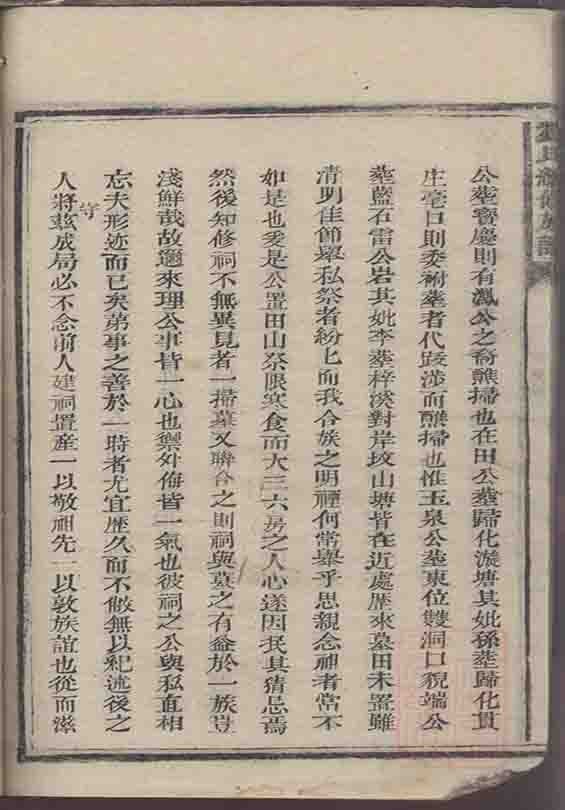 公塟寳慶則有瀛公之裔醮掃也在田公塟歸化漩塘其妣孫塟歸化貫
庄亳日則委祔塟者代踐涉而醮掃也惟玉泉公塟東位雙洞口猊端公
塟藍石雷公岩其妣李塟梓溪對岸坟山塘皆在近處歴來墓田未置雖
清明佳節舉私祭者紛匕而我合族之明禋何常舉乎思親念祖者當不
如是也爰是公置田山祭限寒食而大三六房之人心遂因民其猜忌焉
然後知修祠不無異見者一掃墓又聯合之則祠與墓之有益於一族豈
淺鮮哉故邇來理公事皆一心也禦外侮皆一氣也彼祠之公與私直相
忘夫形迹而已矣第事之善於一時者尤宜歴久而不敝無以紀述後之
人將茲成局必不念前人建祠置産一以敬祖先一以敦族誼也從而滋
守
氏 族譜